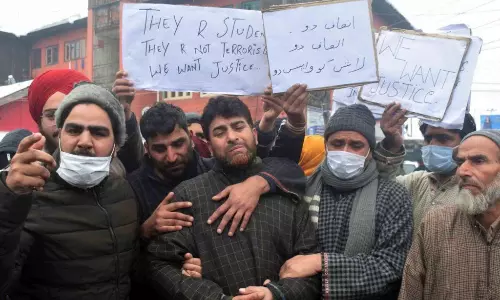 THEY R STUDE
THEY R NOT TERRORIS
WE WANT JUSTICE.
انصاف دو
انصاف دو
لاشیں کو واپس دو
WE WANT
JUSTICE